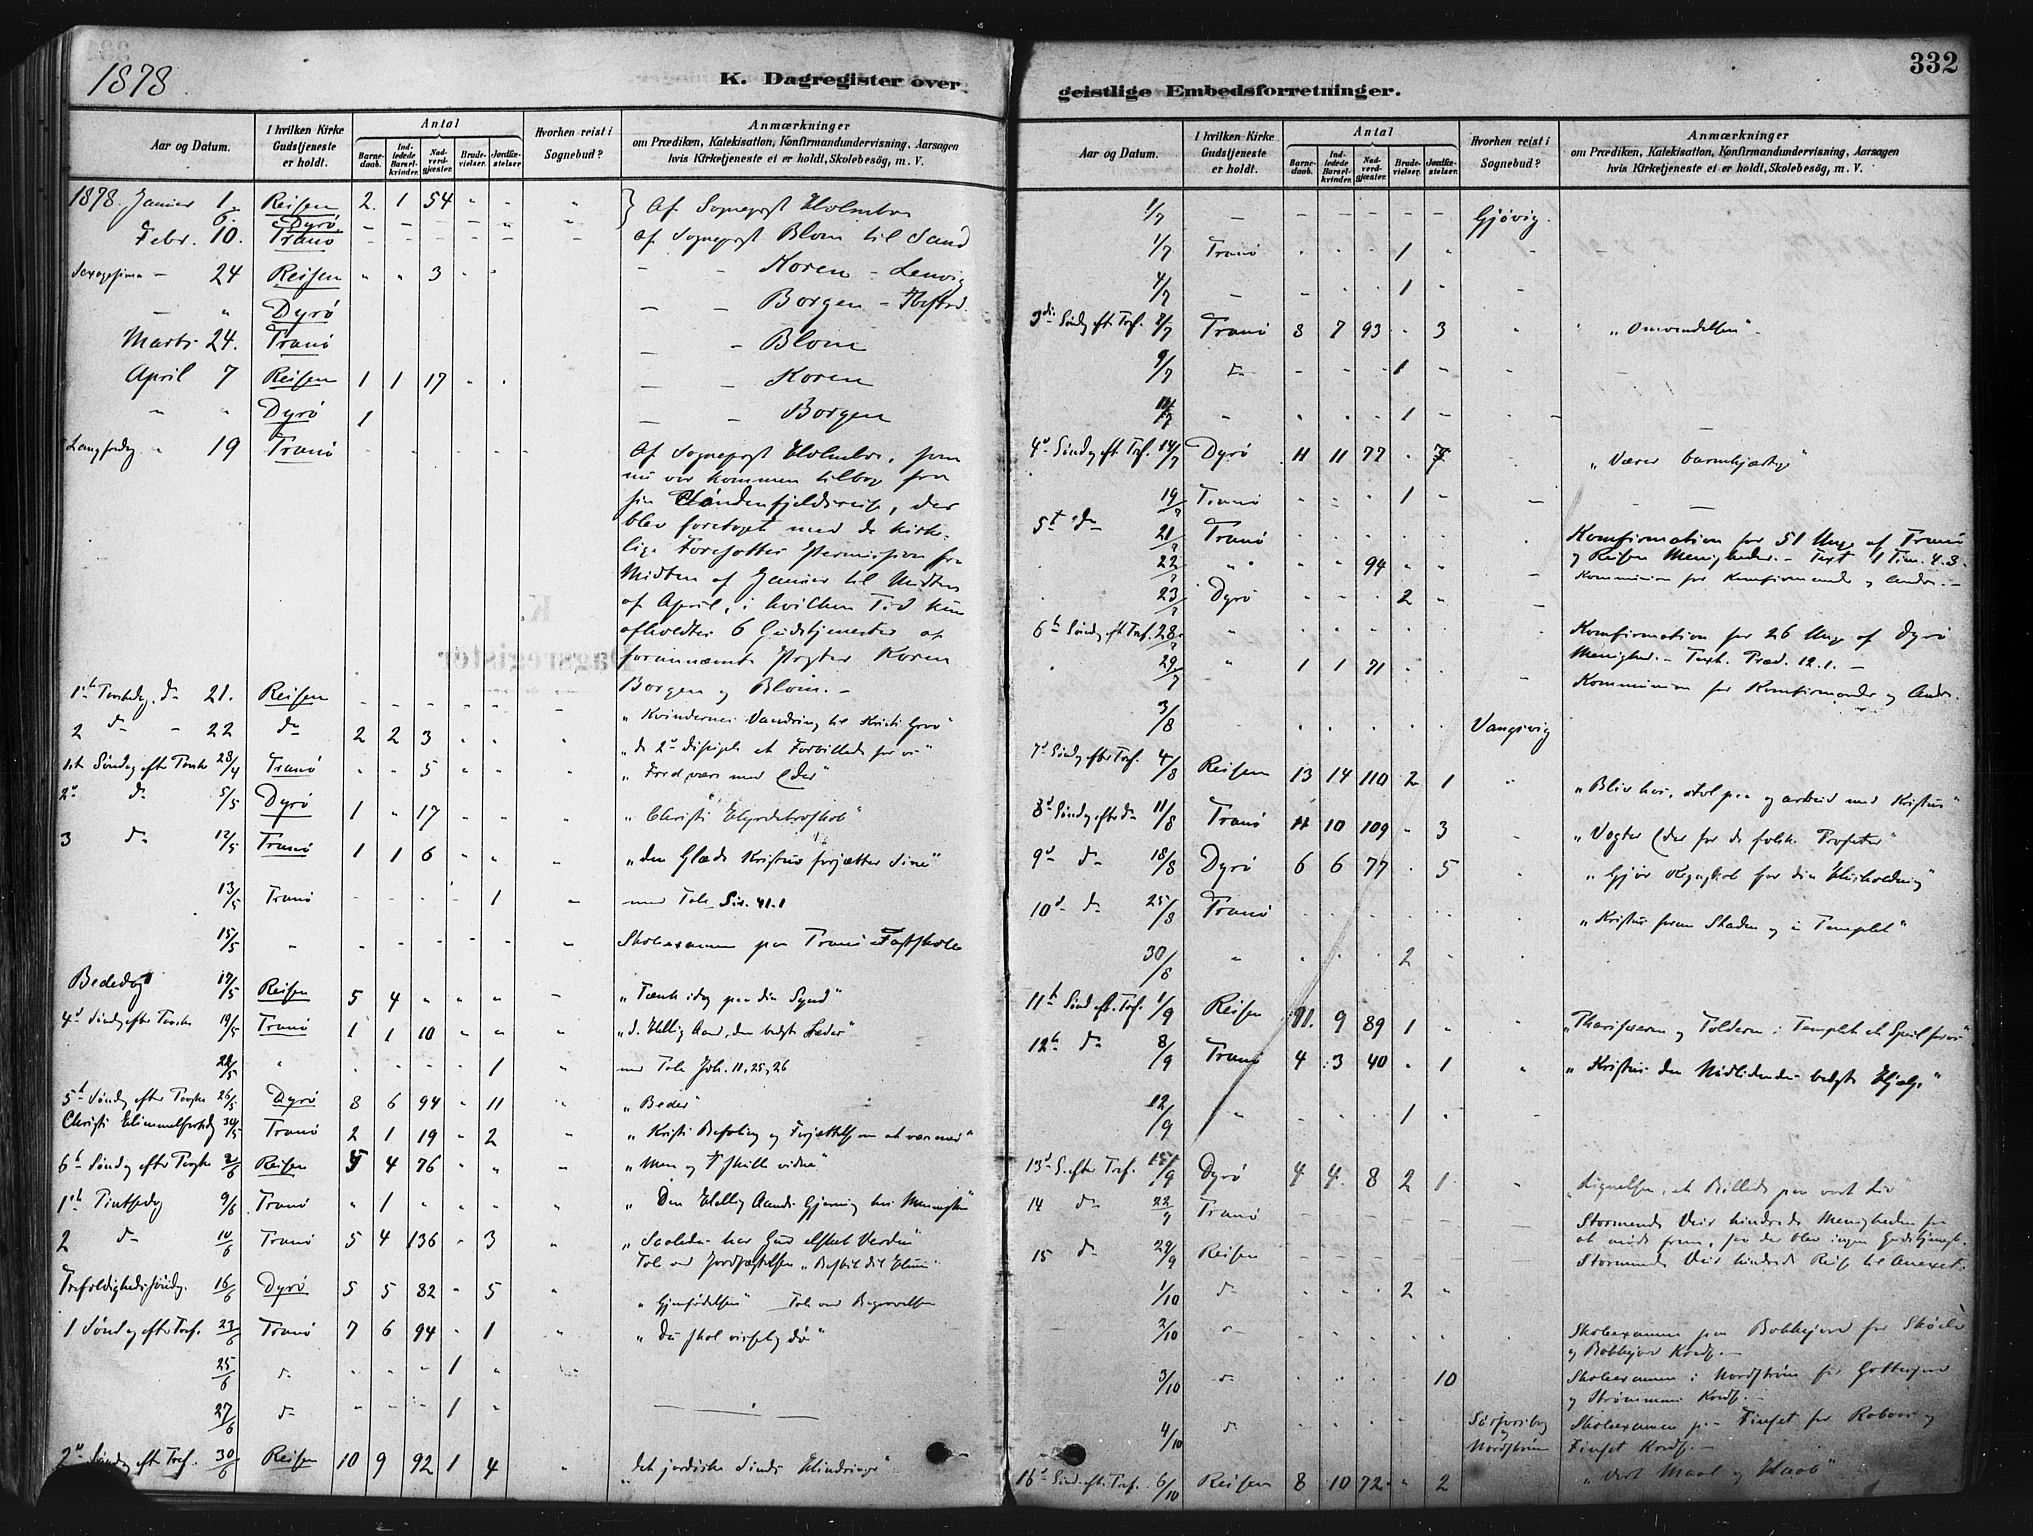 1878.
K. Dagregister over
Aar og Datum.
I hvilken Kirke Gudstjeneste er holdt.
Antal
Barnedaab.
Indledede Barselkvinder.
Nadverdgjæster.
Brudevielser.
Jordfæstelser.
Hvorhen reist i Sognebud?
Anmærkninger
om Prædiken, Katekisation, Konfirmandundervisning. Aarsagen
hvis Kirketjeneste ei er holdt, Skolebesøg, m. V.
1878. Januar 1. Reisen 2. 1 54 Af Sogneprest Holmboe
6. Dyrø
Febr. 10. Tranø af Sogneprest Blom til Sand
Sexagesima 24 Reisen " " 3 Koren - Lenvig
Dyrø Borgen - Ibestad.
Marts 24. Tranø Blom
April 7 Reisen 1 1 17 Koren
" " Dyrø 1 Borgen
Langfredag 19 Tranø Af Sogneprest Holmboe, som
nu var kommen tilbage fra
sin Søndenfjeldsreise, der
blev foretaget med de kirkelige
Foresattes Permission fra
Midten af Januar til Midten
af April, i hvilken Tid kun
afholdtes 6 Gudstjenester af
fornævnte Prester Koren
Borgen og Blom. -
1ste Paaskedag do 21. Reisen
"Kvindernes Vandring til Kristi Grav"
2 do - 22 do 2 2 3
1ste Søndag efter Paaske 28/4 Tranø " " 5 "Fred være med Eder"
2den do 5/5 Dyrø 1 " 17 "Christi Hyrdetroskab"
3 do 12/5 Tranø 1 1 6 "den Glæde Kristus forjætter Sine"
13/5 Tranø 1 med Tale Sir. 41.1
15/5 " Skoleexamen paa Tranø Fastskole
Bededag 17/5 Reisen 5 4 " " " "Tænk idag paa din Synd"
4de Søndag efter Paaske 19/5 Tranø 1 1 10 "d. Hellig Aand, den bedste Leder"
22/5 " 1 med Tale Joh. 11.25,26
5te Søndag efter Paaske 26/5 Dyrø 8 6 94 - 11 "Beder"
Christi Himmelfartsdag 30/5 Tranø 2 1 19 - 2
6te Søndag efter Paaske 2/6 Reisen 5 4 76
1ste Pintsedag 9/6 Tranø " 1 "Den Hellig Aands Gjerning hos Mennesket"
2 do 10/6 Tranø 5 4 136 - 3 "Saaledes har Gud elsket Verden"
Trefoldighedssøndag. 16/6 Dyrø 5 5 82 - 5 "Gjenfødelsen" Tale ved Begravelsen
1 Søndag efter Tref. 23/6 Tranø 7 6 94 - 1 "Du skal visselig dø"
25/6 do 1
27/6 do 1
2den Søndag eft Tref. 30/6 Reisen 10 9 92 1 4
geistlige Embedsforretninger.
332
Aar og Datum.
I hvilken Kirke Gudstjeneste er holdt.
Antal
Barnedaab.
Indledede Barselkvinder.
Nadverdgjæster.
Brudevielser.
Jordfæstelser.
Hvorhen reist i Sognebud?
Anmærkninger
om Prædiken, Katekisation, Konfirmandundervisning, Aarsagen
hvis Kirketjeneste ei er holdt, Skolebesøg, m. V.
1/7 Gjøvig.
1/7 Tranø 1
4/7 1
3die Søndag eft. Tref. 7/7 Tranø 8 7 93 - 3 "Omvendelsen"
9/7 do 1
11/7 1
4de Søndag eft. Tref. 14/7 Dyrø 11 11 77 . 7 "Værer barmhjertige"
19/7 Tranø 1
5te do 21/7 Tranø Konfirmation for 51 Unge af Tranø
og Reisen Menigheder. - Text 1 Tim. 4.8.
22/7 " " 94 Kommunion for Konfirmerede og Andre. -
23/7 Dyrø 2
6te Søndag eft Tref. 28/7 " Konfirmation for 26 Unge af Dyrø
Menighed. - Text. Præd. 12.1. -
29/7 " 1 1 71 Kommunion for Konfirmerede og Andre.
3/8 Vangsvig
7de Søndag efter Tref. 4/8 Reisen 13 14 110 2 1
8de Søndag efter do 11/8 Tranø 11 10 109 - 3 "Vogter Eder for de falske Profeter"
9de do 18/8 Dyrø 6 6 77 . 5 "Gjør Regnskab for din Husholdning"
10de do 25/8 Tranø "Kristus foran Staden og i Templet"
30/8 " 2
11te Sønd eft. Tref. 1/9 Reisen 11. 9 89 1 "Pharisæeren og Tolderen i Templet et Speil for os"
12te do 8/9 Tranø 4 3 40 - 1 "Kristus den Nidlidendes bedste Hjelp"
12/9 " 1
13de S. efter Tref. 15/9 Dyrø 4 4 8 2 1
14 do 22/9 Tranø Stormende Veir hindrede Menigheden fra
at møde frem, saa der blev ingen Gudstjeneste.
15 do 29/9 Reisen Stormende Veir hindrede Reise til Annexet.
1/10 do 2
2/10 Skoleexamen paa
3/10 do 10 Skoleexamen i
og Strømmen Kreds. -
4/10 do Skoleexamen paa Finset for
Finset Kreds. -
16de Sønd. eft. Tref. 6/10 Reisen 8 10 72 " 2 "Vort Maal og Haab"